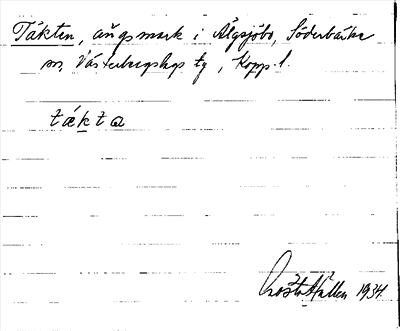 Täkten, ängsmark i Älgsjöbo, Söderbärke
sn, Västerbergslags tg, Kopp. l.
täkta
Gösta Hallen 1934.